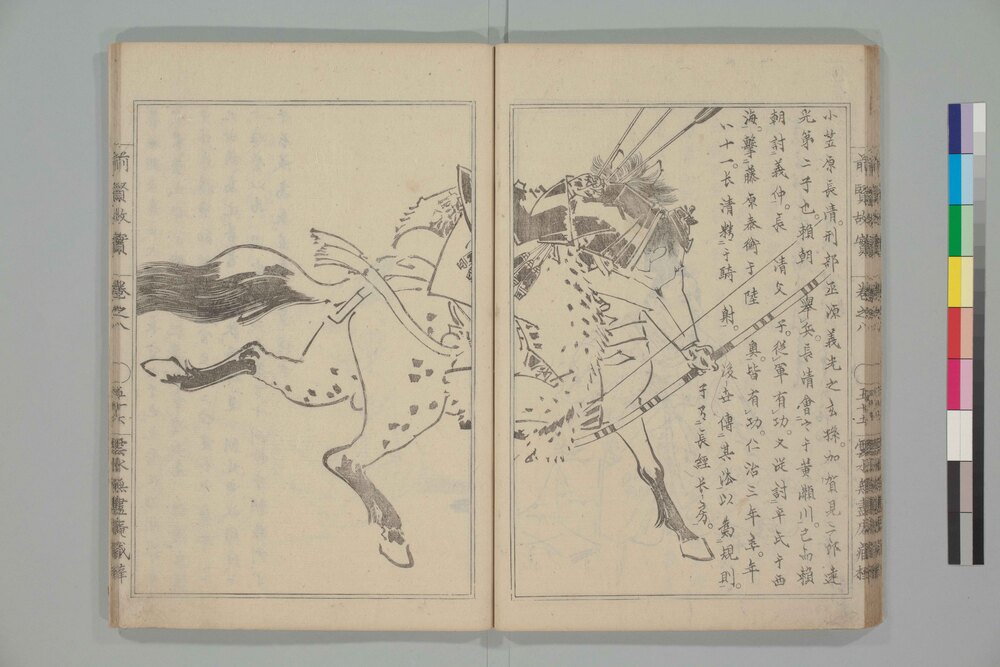 小笠原長清。刑部丞源義光之玄孫。加賀見二郎遠
光第二子也。賴朝擧兵。長清會之于黄瀬川。已而賴
朝討義仲。長清父子。從軍有功。又從討平氏于西
海。擊藤原泰衡于陸奥。皆有功。仁治三年卒。年
八十一。長清精于騎射。後世傳其法以爲規則。
子曰長經長房。
前賢故實
卷之八
五十五
前賢故實
卷之八
五十六